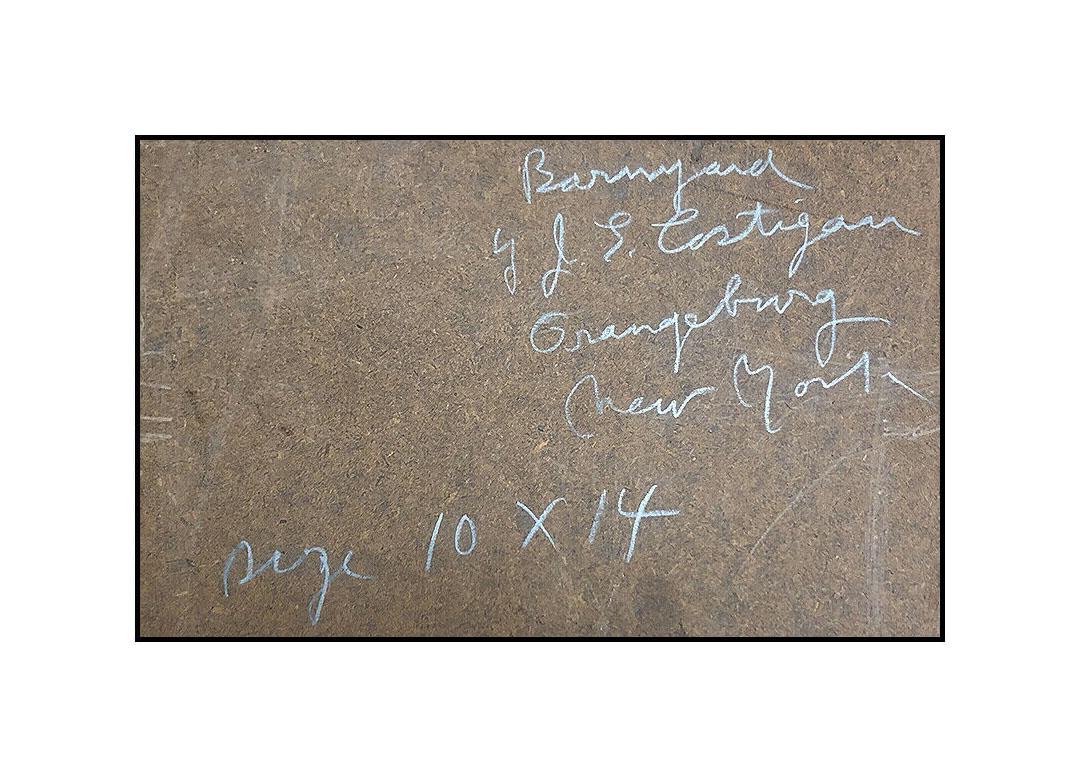 Barnyard
by J. E. Costigan
Orangeburg
New York
size 10 X 14